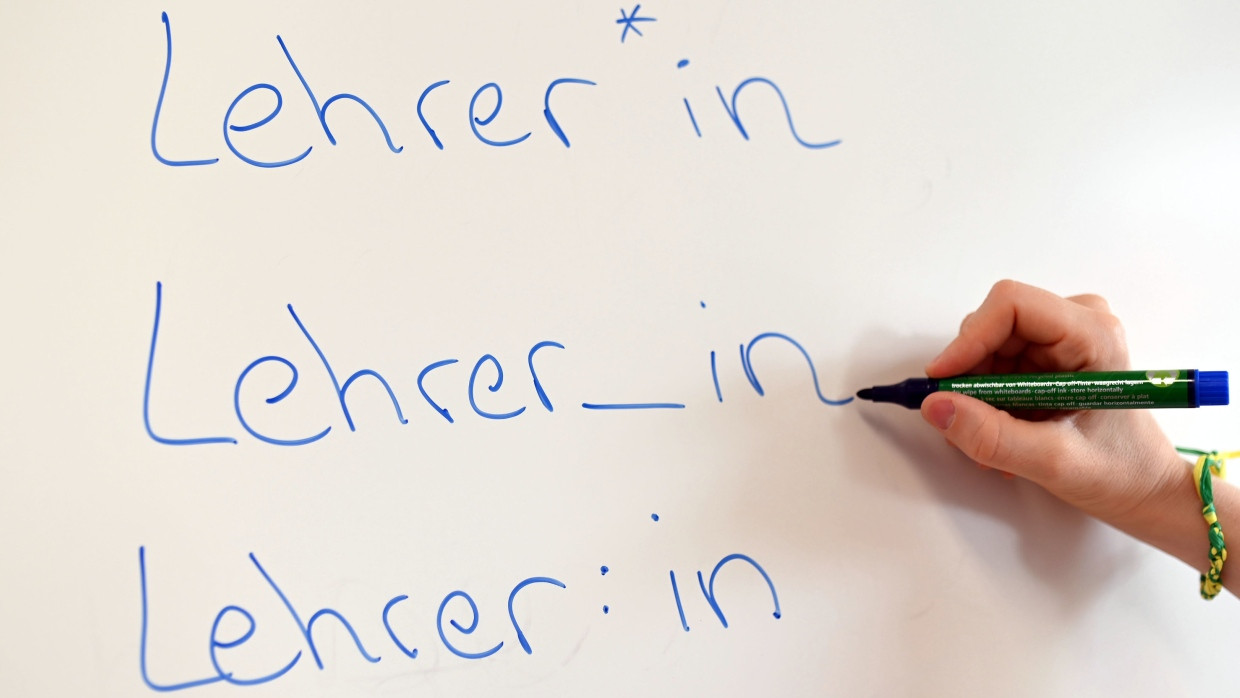 Lehrer*in
Lehrer_in
trocken abwischbar von Whiteboards · Cap off-Tinte · waagrecht lagern
wipe from whiteboards · cap-off ink · store horizontally
sec sur tableaux blancs · encre cap off · conserver à plat
blancas · tinta cap off · guardar horizontalmente
Lehrer:in